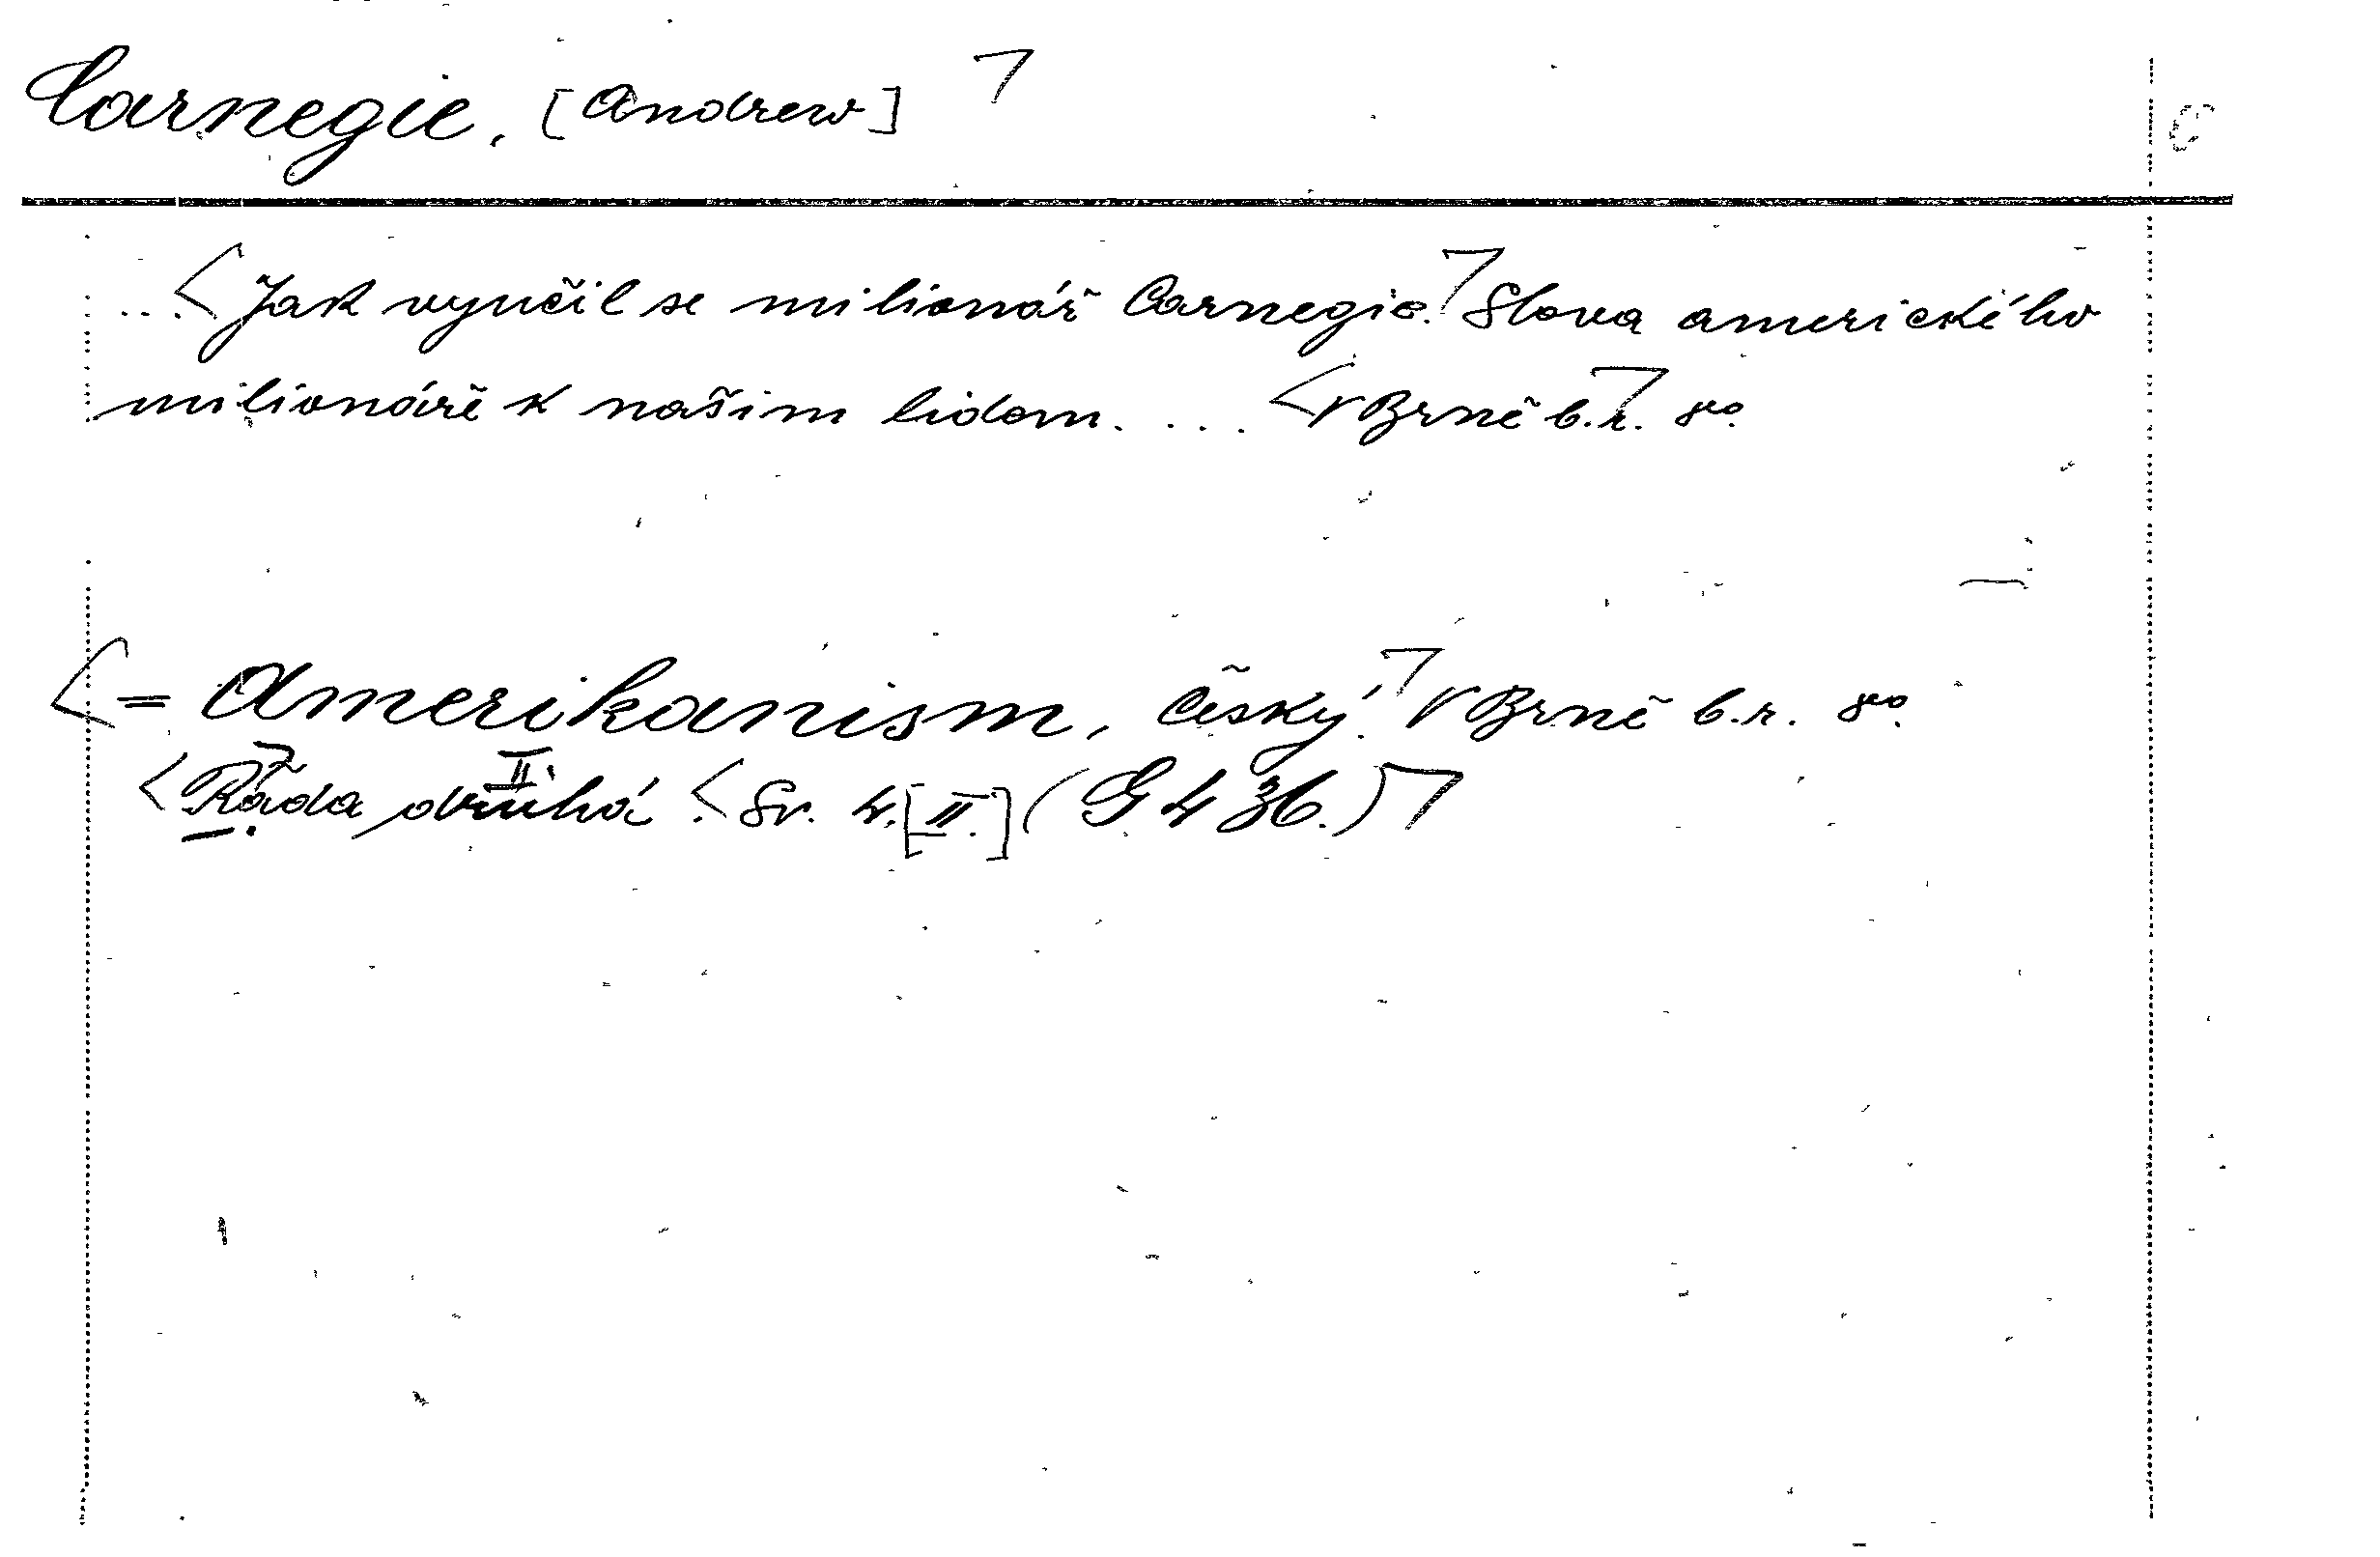 Carnegie. [Andrew]
C
... Jak vyučil se milionář Carnegie. Slova amerického
milionáře k našim lidem. ... V Brně b.r. 8o.
= Amerikanism, český. V Brně b.r. 8o.
Řada druhá II. Sv. 4. [II.] (G 4 36.)